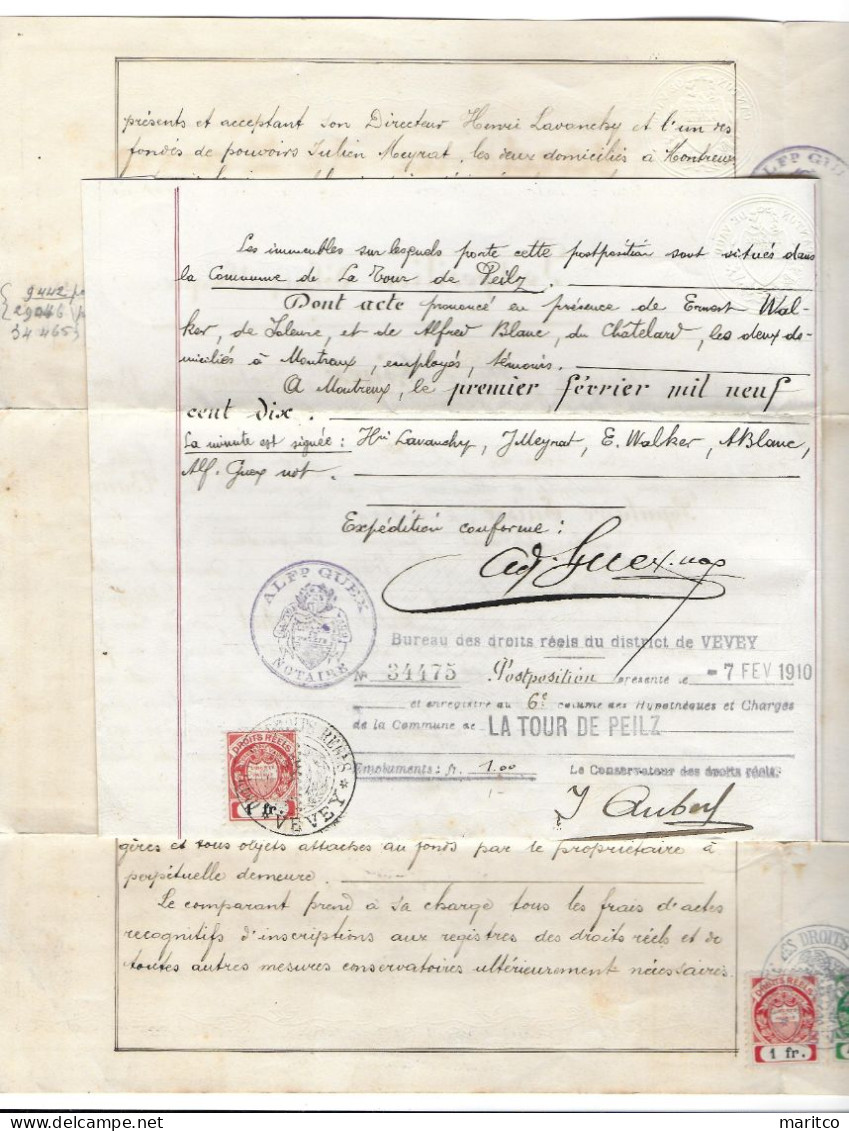 présents et acceptant son Directeur Henri Lavanchy et l'un des
fondés de pouvoirs Julien Meyrat, les deux domiciliés à Montreux
ALFD GU
9442
29046
34465
Les immeubles sur lesquels porte cette postposition sont situés dans
la Commune de La Tour de Peilz.
Dont acte prononcé en présence de Ernest Wal-
ker, de Soleure, et de Alfred Blanc, du Châtelard, les deux do-
miciliés à Montreux, employés, témoins.
A Montreux, le premier février mil neuf
cent dix.
La minute est signée: Hri Lavanchy, J Meyrat, E. Walker, ABlanc,
Alf. Guex not.
Expédition conforme:
Guex, not
ALFD GUEX
NOTAIRE
Bureau des droits réels du district de VEVEY
No 34475 Postposition présenté le -7 FEV 1910
et enregistré au 6e volume des Hypothèques et Charges
de la Commune de LA TOUR DE PEILZ
Emoluments: fr. 1.00 Le Conservateur des droits réels:
J Aubert
DROITS RÉELS
1 fr.
DROITS RÉELS
VEVEY
gères et tous objets attachés au fonds par le propriétaire à
perpétuelle demeure.
Le comparant prend à sa charge tous les frais d'actes
recognitifs d'inscriptions aux registres des droits réels et de
toutes autres mesures conservatoires ultérieurement nécessaires.
DES DROITS
DROITS RÉELS
1 fr.
maritco